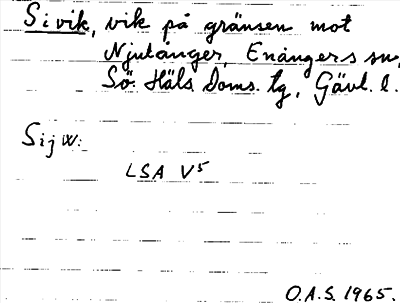 Sivik, vik på gränsen mot
Njutånger, Enångers sn,
Sö. Häls. Doms. lg, Gävl. l.
Sijw:
LSA V5
O.A.S. 1965.